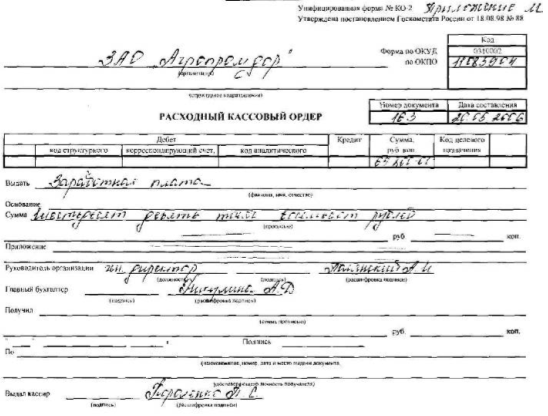 Унифицированная форма № КО-2 Приложение М
Утверждена постановлением Госкомстата России от 18.08.98 № 88
Код
Форма по ОКУД 0310002
ЗАО „Агропромдор" по ОКПО
(организация)
(структурное подразделение)
Номер документа Дата составления
РАСХОДНЫЙ КАССОВЫЙ ОРДЕР 163
Дебет Кредит Сумма, руб. коп. Код целевого назначения
код структурного корреспондирующий счет, код аналитического
Выдать Заработная плата
(фамилия, имя, отчество)
Основание
Сумма шестьдесят девять тысяч рублей
(прописью)
руб. коп.
Приложение
Руководитель организации ген. директор А.И
(должность) (подпись) (расшифровка подписи)
Главный бухгалтер А.Ф
(подпись) (расшифровка подписи)
Получил
(сумма прописью)
руб. коп.
Подпись
По
(наименование, номер, дата и место выдачи документа,
удостоверяющего личность получателя)
Выдал кассир
(подпись) (расшифровка подписи)